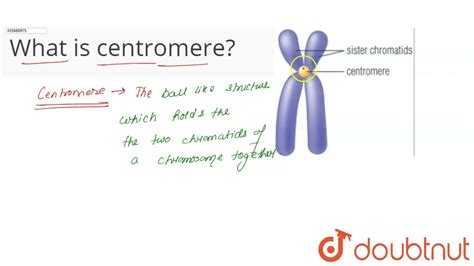 What is centromere?
Centromere → The ball like structure
which holds the
the two chromatids of
a chromosome together
sister chromatids
centromere
doubtnut